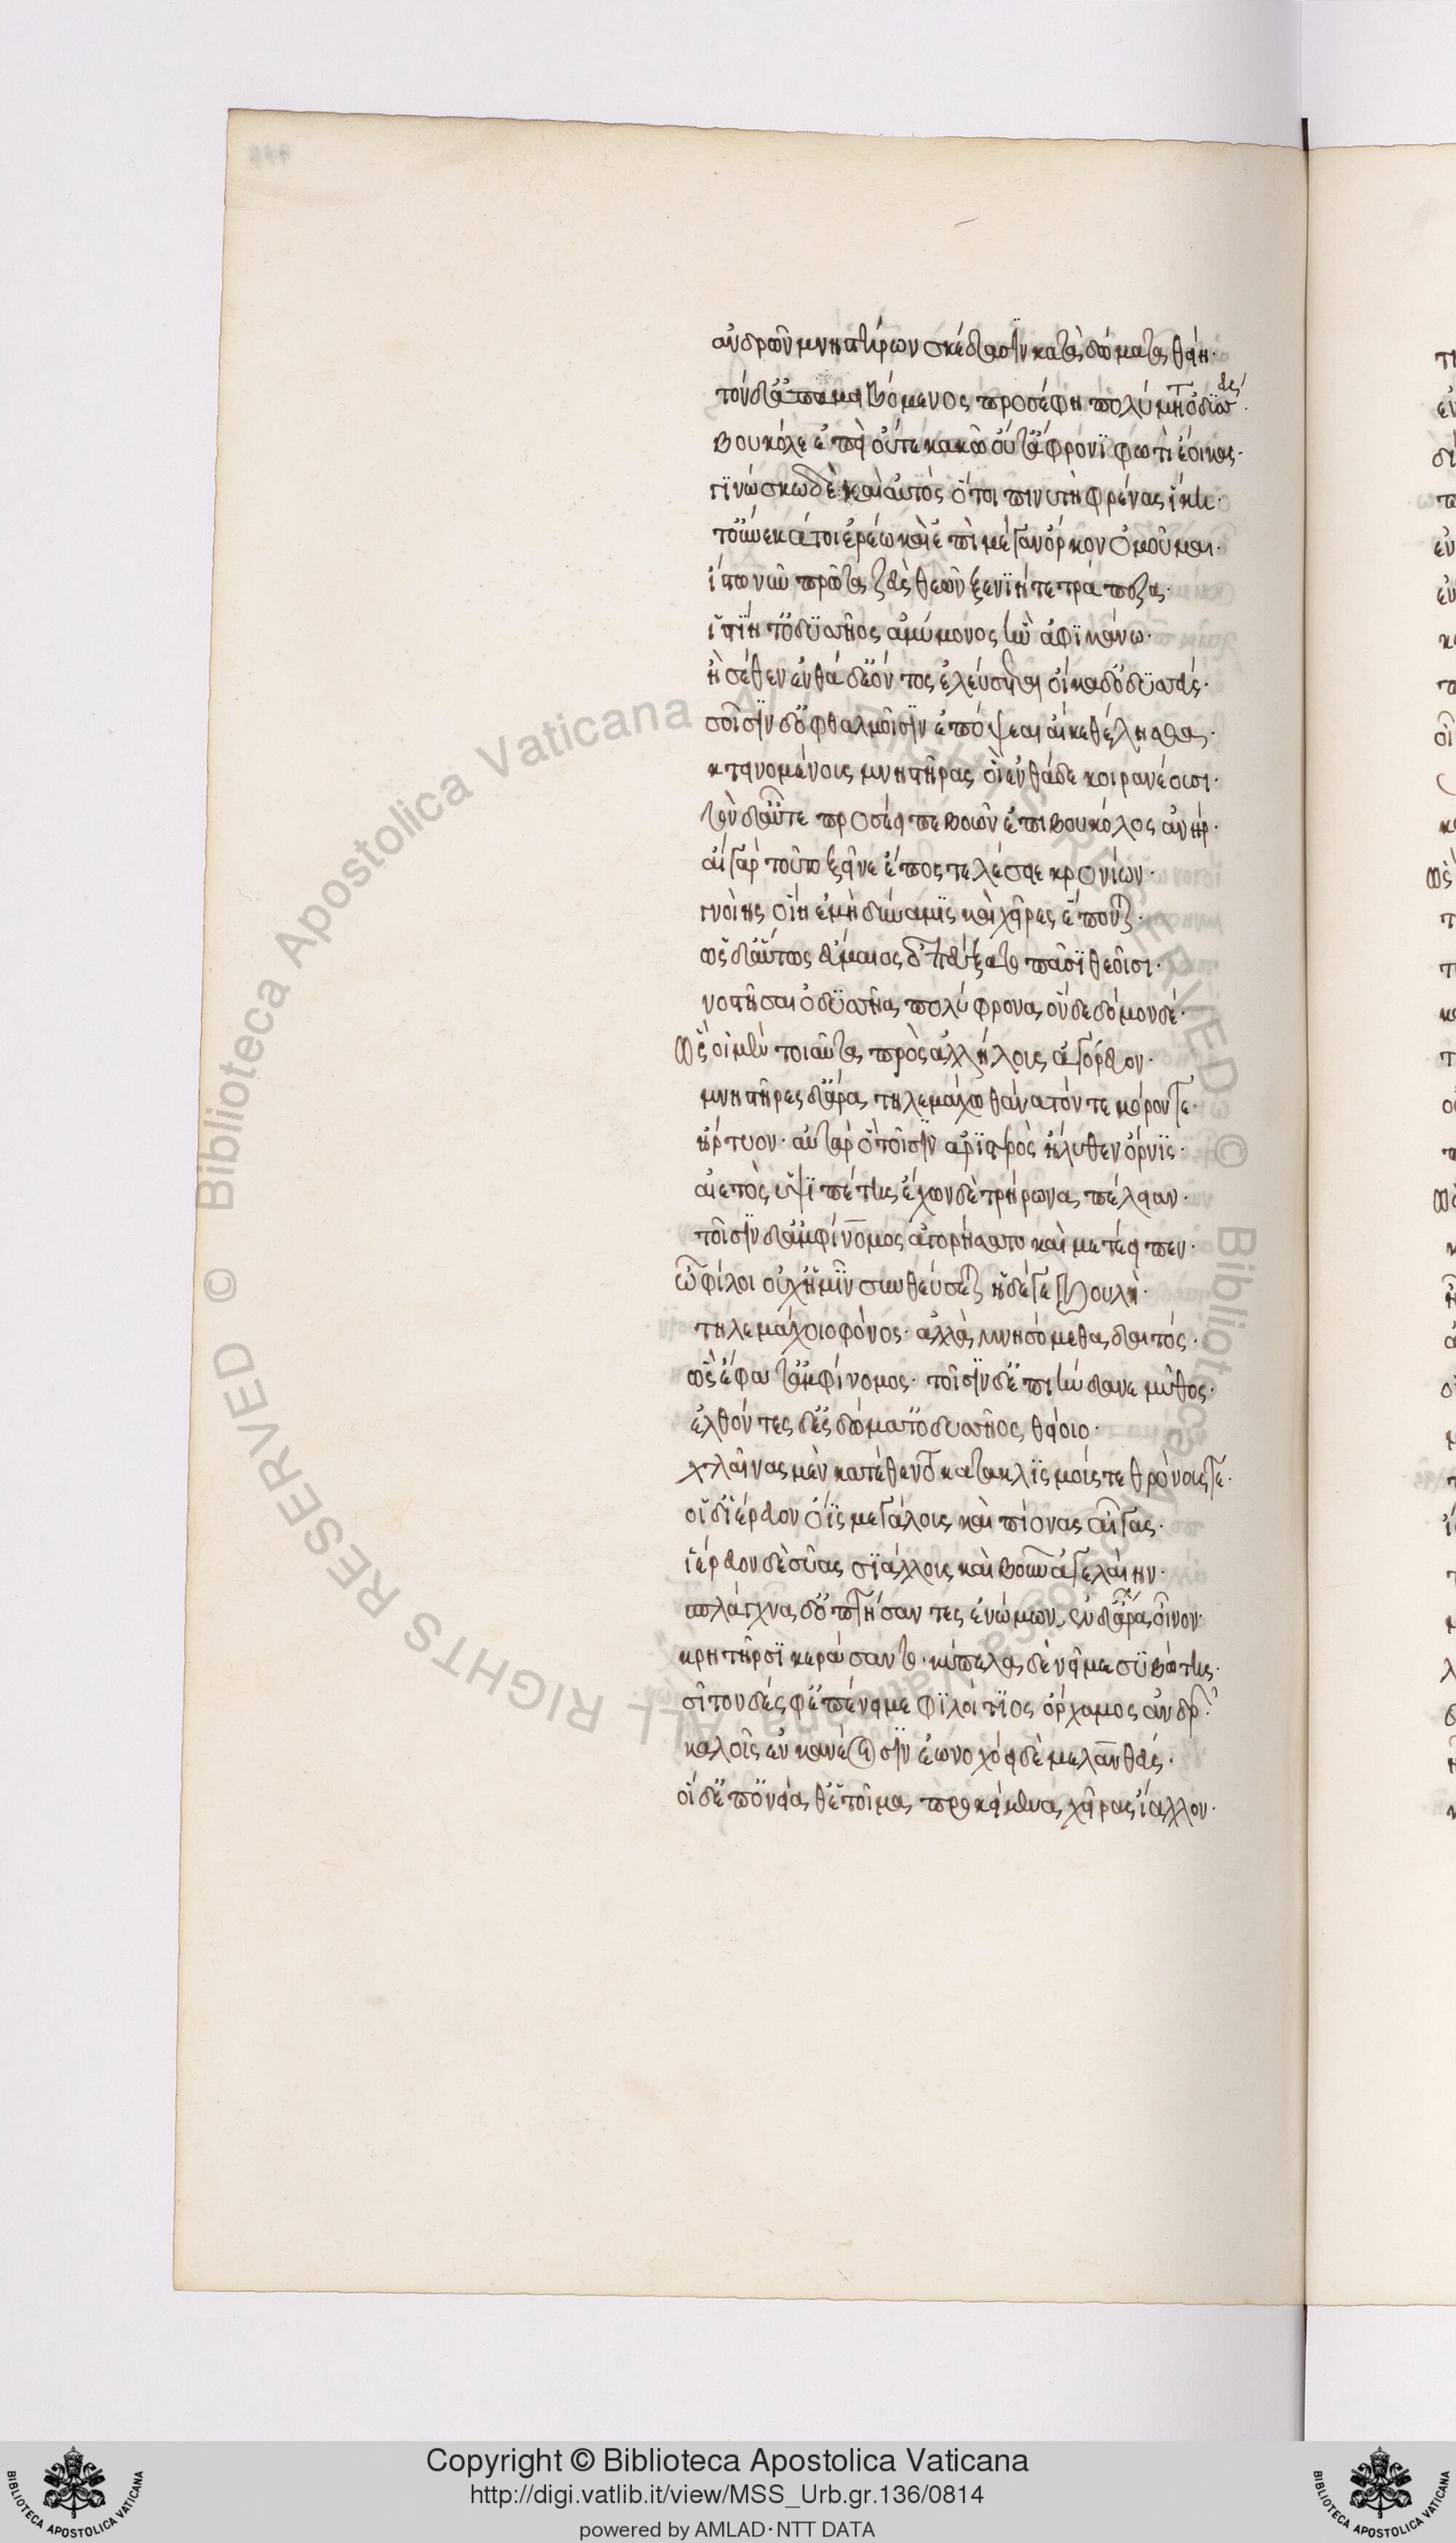 ἀνδρῶν μνηστήρων σκέδασιν κατὰ δώματα θείη·
τὸν δ' ἀπαμειβόμενος προσέφη πολύμητις ὀδυσσεύς·
βουκόλ' ἐπεὶ οὔτε κακῶ οὔτ' ἄφρονι φωτὶ ἔοικας·
γινώσκω δὲ καὶ αὐτὸς ὅτοι πινυτὴ φρένας ἵκει·
τοὔνεκά τοι ἐρέω καὶ ἐπὶ μέγαν ὅρκον ὀμοῦμαι·
ἴστω νῦν πρῶτα ζεὺς θεῶν ξενίη τε τράπεζα·
ἱστίη τ' ὀδυσῆος ἀμύμονος ἣν ἀφικάνω·
ἦ σέθεν ἐνθάδ' ἐόντος ἐλεύσεται οἴκαδ' ὀδυσσεύς·
σοῖσιν δ' ὀφθαλμοῖσιν ἐπόψεαι αἴκ' ἐθέλησθα·
κτεινομένους μνηστῆρας οἳ ἐνθάδε κοιρανέουσι·
τὸν δ' αὖτε προσέειπε βοῶν ἐπιβουκόλος ἀνήρ·
αἲ γὰρ τοῦτο ξεῖνε ἔπος τελέσειε κρονίων·
γνοίης οἵη ἐμὴ δύναμις καὶ χεῖρες ἕπονται·
ὣς δ' αὔτως εὔμαιος ἐπεύξατο πᾶσι θεοῖσι·
νοστῆσαι ὀδυσσῆα πολύφρονα ὅνδε δόμονδέ·
ὣς οἱ μὲν τοιαῦτα πρὸς ἀλλήλους ἀγόρευον·
μνηστῆρες δ' ἄρα τηλεμάχω θάνατόν τε μόρον τε·
ἤρτυον· αὐτὰρ ὃ τοῖσιν ἀριστερὸς ἤλυθεν ὄρνις·
αἰετὸς ὑψιπέτης ἔχων δὲ τρήρωνα πέλειαν·
τοῖσιν δ' ἀμφίνομος ἀγορήσατο καὶ μετέειπεν·
ὦ φίλοι οὐχ ἡμῖν συνθεύσεται ἥδέ γε βουλὴ·
τηλεμάχοιο φόνος· ἀλλὰ μνησόμεθα δαιτός·
ὣς ἔφατ' ἀμφίνομος· τοῖσιν δ' ἐπιήνδανε μῦθος·
ἐλθόντες δ' ἐς δώματ' ὀδυσσῆος θείοιο·
χλαίνας μὲν κατέθεντο κατὰ κλισμούς τε θρόνους τε·
οἳ δ' ἱέρευον ὄϊς μεγάλους καὶ πίονας αἶγας·
ἱέρευον δὲ σύας σιάλλους καὶ βοῦν ἀγελαίην·
σπλάγχνα δ' ὀπτήσαντες ἐνώμων, ἐν δ' ἄρα οἶνον·
κρητῆρσι κεράσαντο· κύπελλα δὲ νεῖμε συβώτης·
σῖτον δέ σφ' ἐπένειμε φιλοίτιος ὄρχαμος ἀνδρῶν·
καλοῖς ἐν κανέοισιν ἐωνοχόει δὲ μελανθεύς·
οἱ δ' ἐπ' ὀνείαθ' ἑτοῖμα προκείμενα χεῖρας ἴαλλον·
Copyright © Biblioteca Apostolica Vaticana
http://digi.vatlib.it/view/MSS_Urb.gr.136/0814
powered by AMLAD·NTT DATA